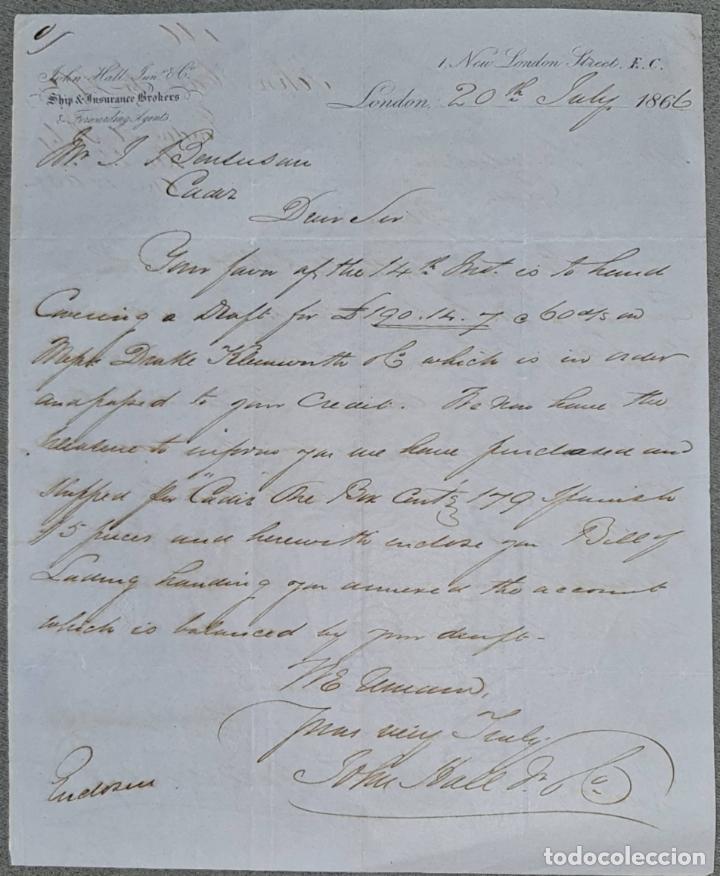 John Hall Junr & Co
Ship & Insurance Brokers
& Forwarding Agents
1, New London Street, E.C.
London, 20th July 1866
Mr J. Bensusan
Cadiz
Dear Sir
Your favor of the 14th Inst. is to hand
Covering a Draft for £190.14.7 @ 60 d/s on
Messrs Drake Kleinwort & Co which is in order
and passed to your Credit. We now have the
pleasure to inform you we have purchased and
shipped per "Cadiz" One Box Contg 179 Spanish
$5 pieces and herewith enclose you Bill of
Lading handing you annexed the account
which is balanced by your draft.
We Remain,
Yours very Truly
John Hall Jr & Co
Enclosure
todocoleccion.net